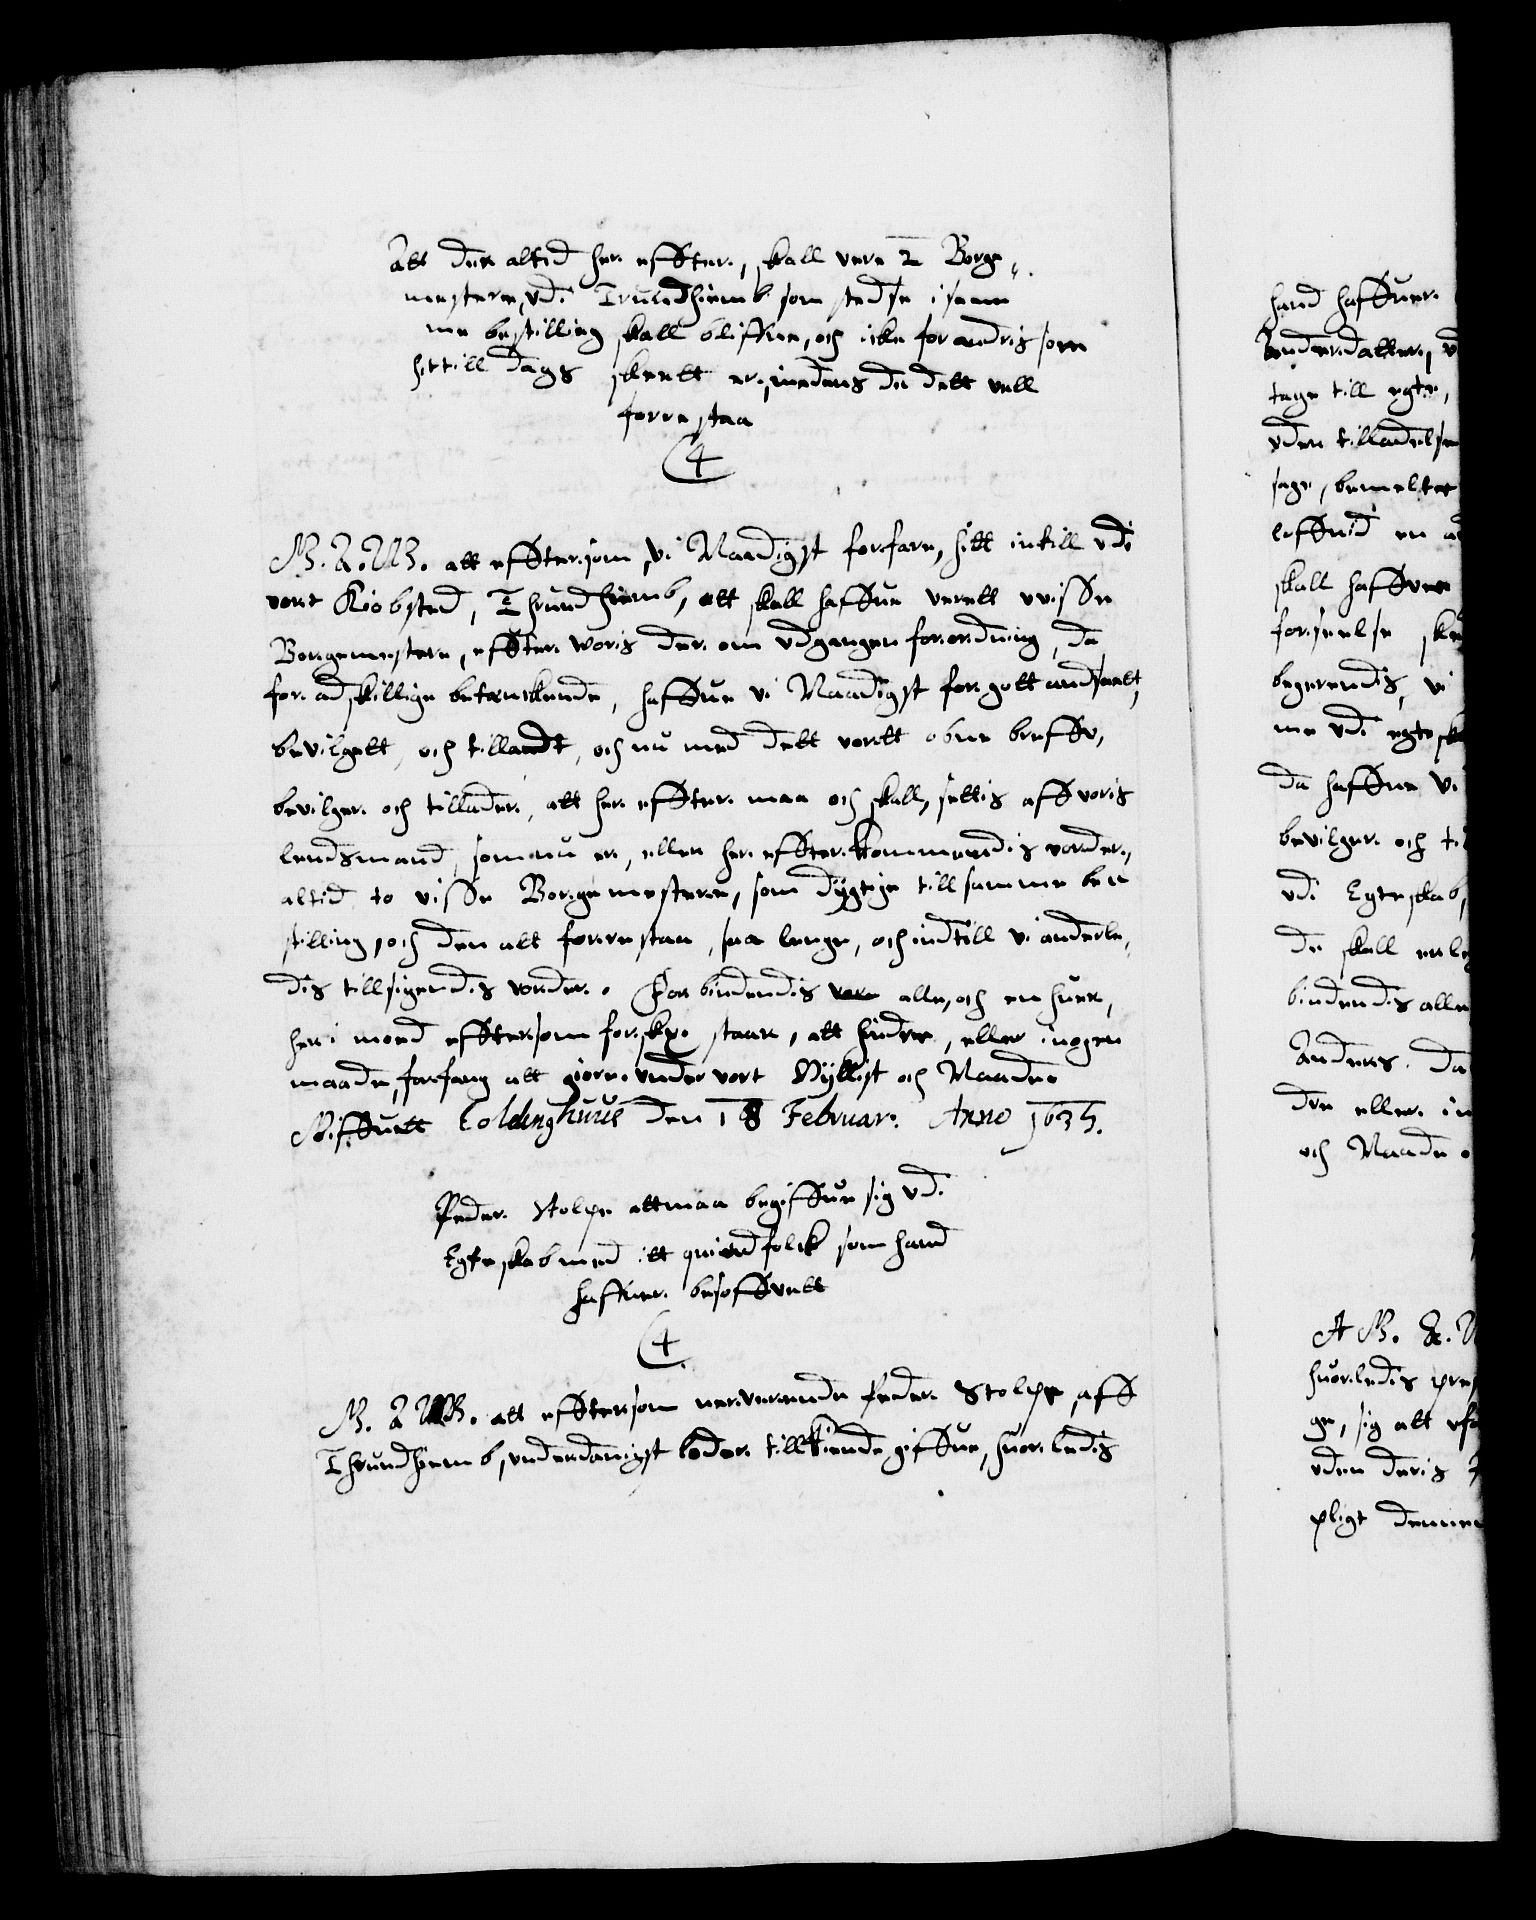 Att der altid her effter, skall vere 2 Borge„
mestere, vdi Trundhiemb som stedse i sam
me bestilling skall bliffue, och icke forandris som
hittill dags skeett er, imedens de dett vell
forrestaa
C4
G. A. W. att effttersom vi Naadigst forfare, hitt intill vdi
vort Kiøbsted, Thrundhiemb, att skall haffue verett uvisse
Borgemestere, effter woris der om vdgangen forordning, da
for adskillige betenckende, haffue vi Naadigst for gott andseelt,
bevilgett, och tilladt, och nu med dett vortt obne breff,
bevilger och tillader, att her effter maa och skall, settis aff voris
lendsmand, som nu er, eller her effter kommendis vorder,
altid to visse Borgemestere, som dygtige till samme be
stilling, och den att forrestaa, saa lenge, och indtill vi anderle,
dis tillsigendis vorder. Forbiudendis alle, och en huer,
her i mod effttersom forskr. staar, att hindre, eller i nogen
maade, forfang att giøre, vnder vort Hyllist och Naade
Giffuett Coldinghuus den 18 Februar. Anno 1635.
Peder Stolpe att maa begiffue sig vdi
Egteskab med itt quindfolck som hand
haffuer besoffvett
C4
G. A W. att effttersom nerverende Peder Stolpe, aff
Thrundhiemb, vnderdanigst lader tillkiende giffue, huorledis
hand haffuer
tage till egte,
vden tilladelse
sage, bemelte
loffuid en
skall haffve
forseelse
begerendis, vi
me vdi egtesk
da haffue Vi
bevilger och til
vdi Egteskab,
de skall
bindendis alle
Anders. Da
dre eller in
och Naade
A G. &.
huorledis
ge, sig att
vden deris
pligt